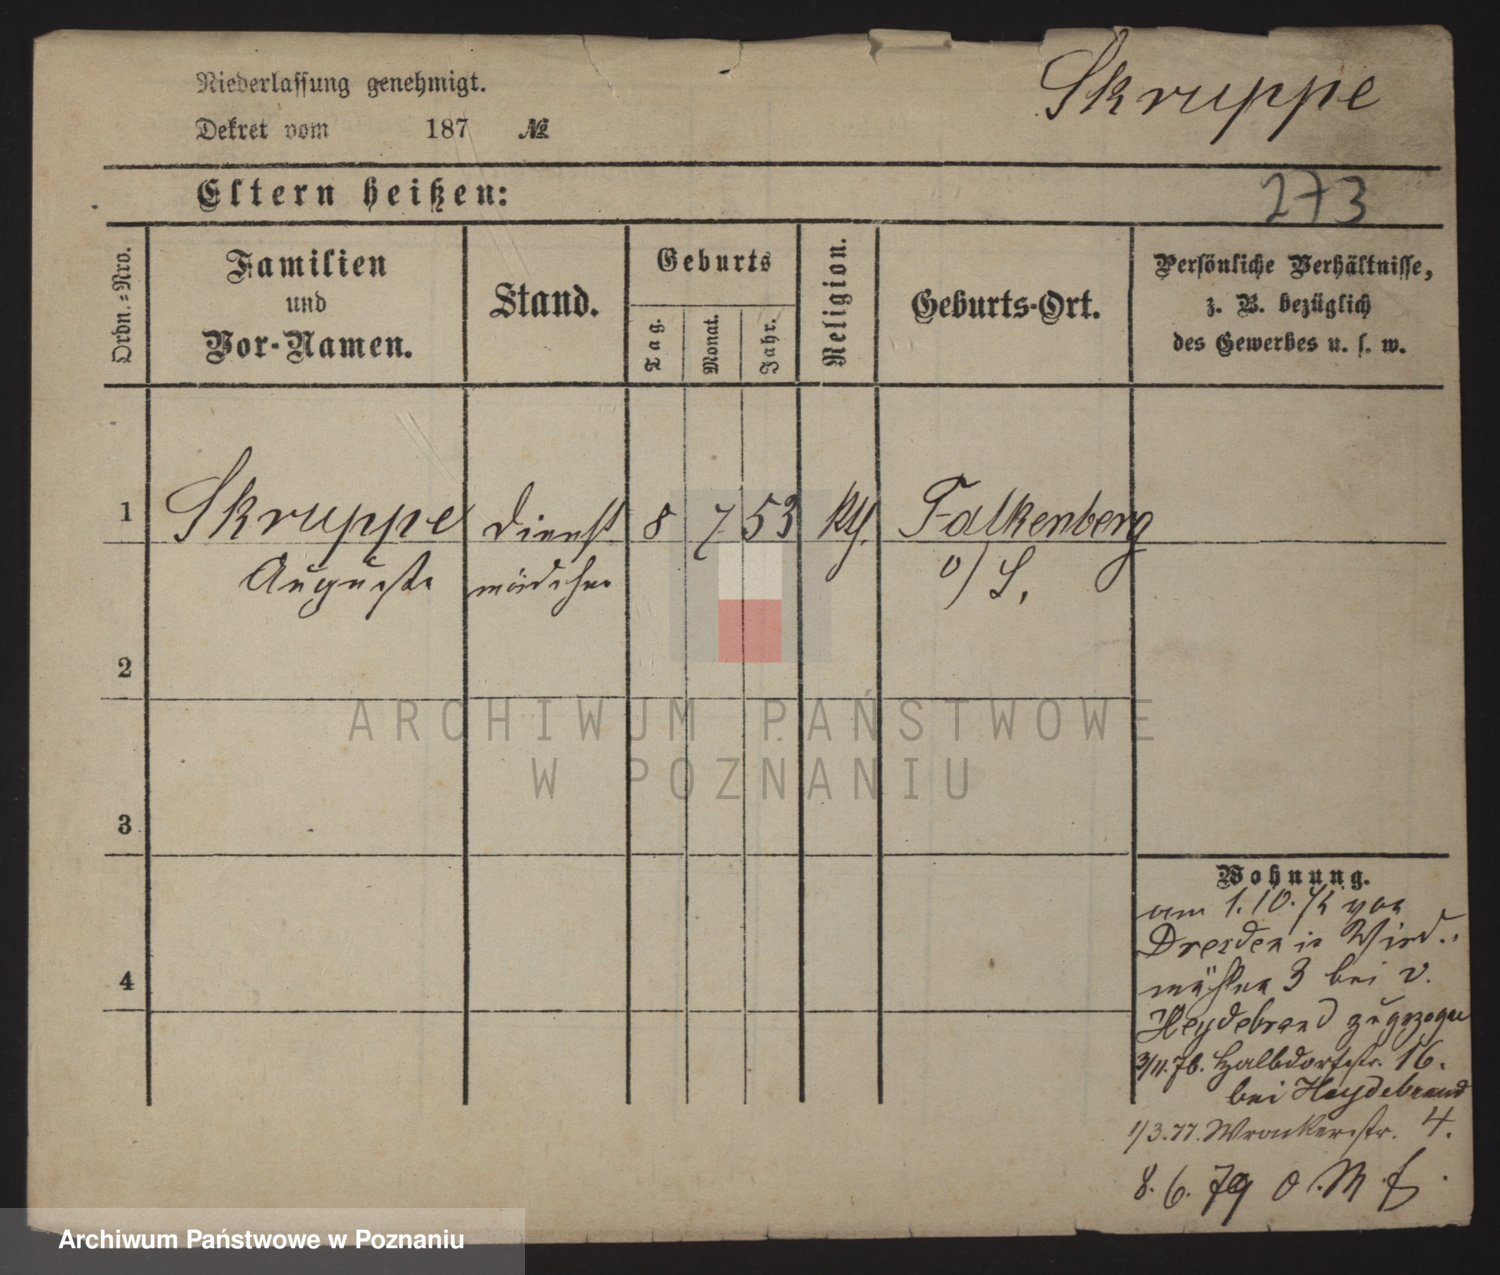 Skruppe
Niederlassung genehmigt.
Dekret vom 187 №
Eltern heißen:
273
Ordn.=Nro.
Familien
und
Vor-Namen.
Stand.
Geburts
Tag.
Monat.
Jahr.
Religion.
Geburts-Ort.
Persönliche Verhältnisse,
z. B. bezüglich
des Gewerbes u. s. w.
1 Skruppe Dienst 8 7 53 Falkenberg
Auguste mädchen o/S.
2
3
4
ARCHIWUM PAŃSTWOWE
W POZNANIU
Wohnung.
am 1.10. von
Dresden in Wind-
mühlen 3 bei v.
Heydebrand zugezogen
3/11.76. Halbdorfstr. 16.
bei Heydebrand
1/3.77. Wronkerstr. 4.
8.6.79
Archiwum Państwowe w Poznaniu